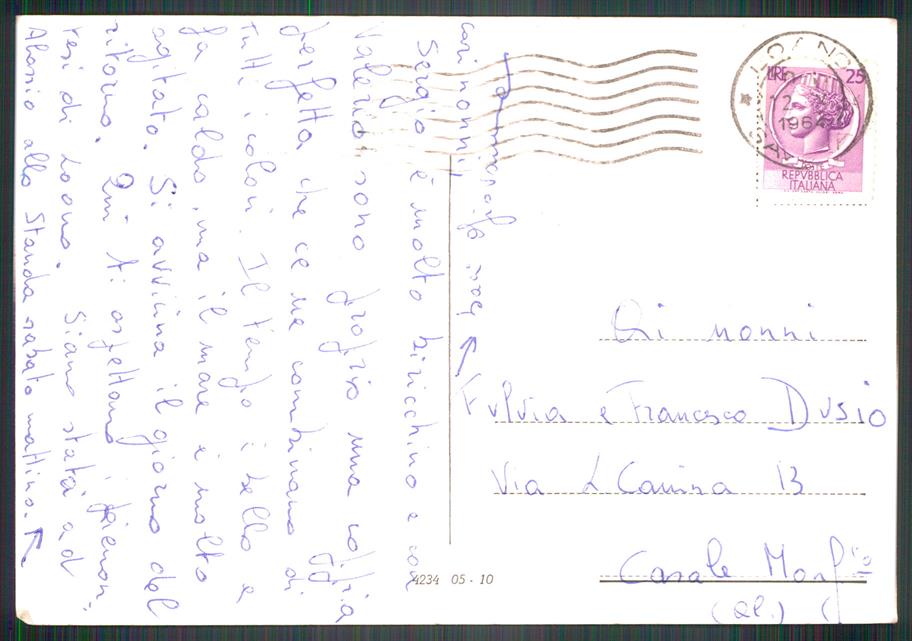 cari nonni,
Sergio è molto biricchino e con
Valerio sono proprio una coppia
perfetta che ce ne combinano di
tutti i colori. Il tempo è bello e
fa caldo, ma il mare è molto
agitato. Si avvicina il giorno del
ritorno. Qui ti aspettano i piemon-
tesi di Loano. Siamo stata ad
Alassio allo Standa sabato mattina.
LOANO
1964
LIRE 25
POSTE
REPVBBLICA
ITALIANA
Ai nonni
Fulvia e Francesco Dusio
Via L Canina 13
Casale Monf.to
(Al.)
4234 05 - 10